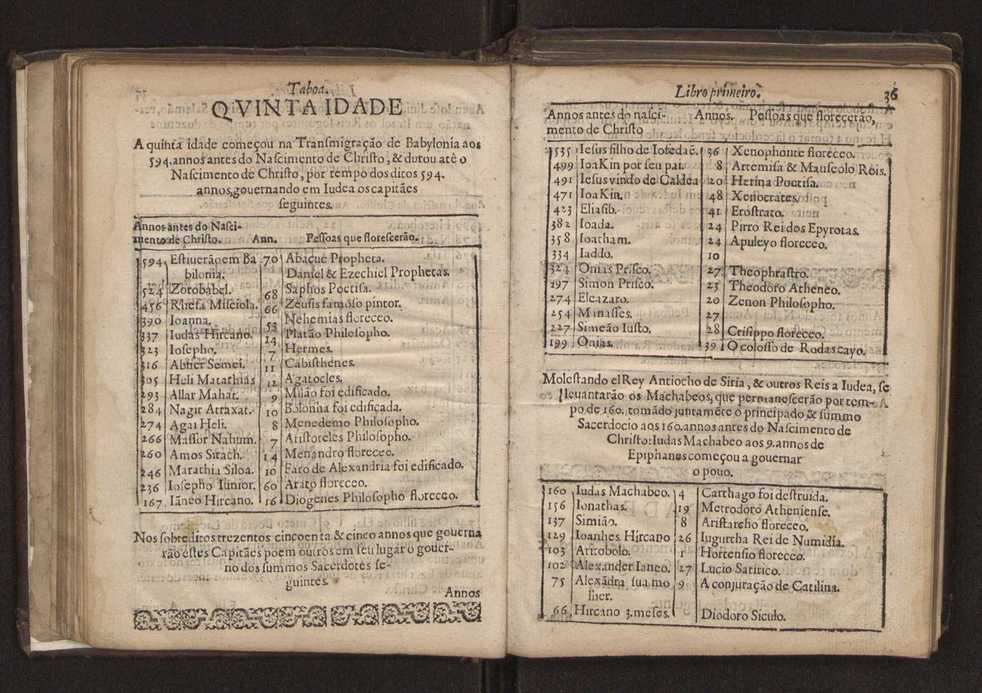 Taboa.
QVINTA IDADE
A quinta idade começou na Transmigração de Babylonia aos
594. annos antes do Nascimento de Christo, & durou atè o
Nascimento de Christo, por tempo dos ditos 594.
annos, gouernando em Iudea os capitães
seguintes.
Annos antes do Nasci-
mento de Christo. Ann. Pessoas que florescerão.
594 Estiuerãpem Ba 70 Abacuc Propheta.
bilonia. Daniel & Ezechiel Prophetas.
524 Zorobabel. 68 Saphos Poetisa.
456 Rhesa Misciola. 66 Zeusis famoso pintor.
390 Ioanna. 53 Nehemias floreceo.
337 Iudas Hircano. 14 Platão Philosopho.
323 Iosepho. 7 Hermes.
316 Abner Semei. 11 Cabisthenes.
305 Heli Matathias 12 Agatocles.
293 Allar Mahat. 9 Milão foi edificado.
284 Nagir Atraxat. 10 Bolonha foi edificada.
274 Agai Heli. 8 Menedemo Philosopho.
266 Massor Nahum. 7 Aristoteles Philosopho.
260 Amos Sirach. 14 Menandro floreceo.
246 Marathia Siloa. 10 Faro de Alexandria foi edificado.
236 Iosepho Iunior. 60 Arato floreceo.
167. Iãneo Hircano. 16 Diogenes Philosopho floreceo.
Nos sobreditos trezentos cincoenta & cinco annos que gouerna
rão estes Capitães poem outros em seu lugar o gouer-
no dos summos Sacerdotes se-
guintes.
Annos
Libro primeiro. 36
Annos antes do nasci- Annos. Pessoas que florecerão,
mento de Christo
535 Iesus filho de Iosedaē. 36 Xenophonte floreceo.
499 IoaKin por seu pai. 8 Artemisa & Mauseolo Reis.
491 Iesus vindo de Caldea 20 Herina Poetisa.
471 IoaKin. 48 Xenocrates.
423 Eliasib. 41 Erostrato.
382 Ioada. 24 Pirro Rei dos Epyrotas.
358 Ioatham. 24 Apuleyo floreceo.
334 Iaddo. 10
324 Onias Prisco. 27 Theophrastro.
197 Simon Prisco. 23 Theodoro Atheneo.
274 Eleazaro. 20 Zenon Philosopho.
254 Minasses. 27
227 Simeão Iusto. 28 Crisippo floreceo.
199 Onias. 39 O colosso de Rodas cayo.
Molestando el Rey Antiocho de Siria, & outros Reis a Iudea, se
leuantarão os Machabeos, que permanescerão por tem-
po de 160. tomãdo juntamēte o principado & summo
Sacerdocio aos 160. annos antes do Nascimento de
Christo: Iudas Machabeo aos 9. annos de
Epiphanes começou a gouernar
o pouo.
160 Iudas Machabeo. 4 Carthago foi destruida.
156 Ionathas. 19 Metrodoro Atheniense.
137 Simião. 8 Aristarcho floreceo.
129 Ioanhes Hircano 26 Iugurtha Rei de Numidia.
103 Aritobolo. 1 Hortensio floreceo.
102 Alexander Ianeo. 27 Lucio Satirico.
75 Alexãdra sua mo 9 A conjuração de Catilina.
lher.
66 Hircano 3. meses. Diodoro Siculo.